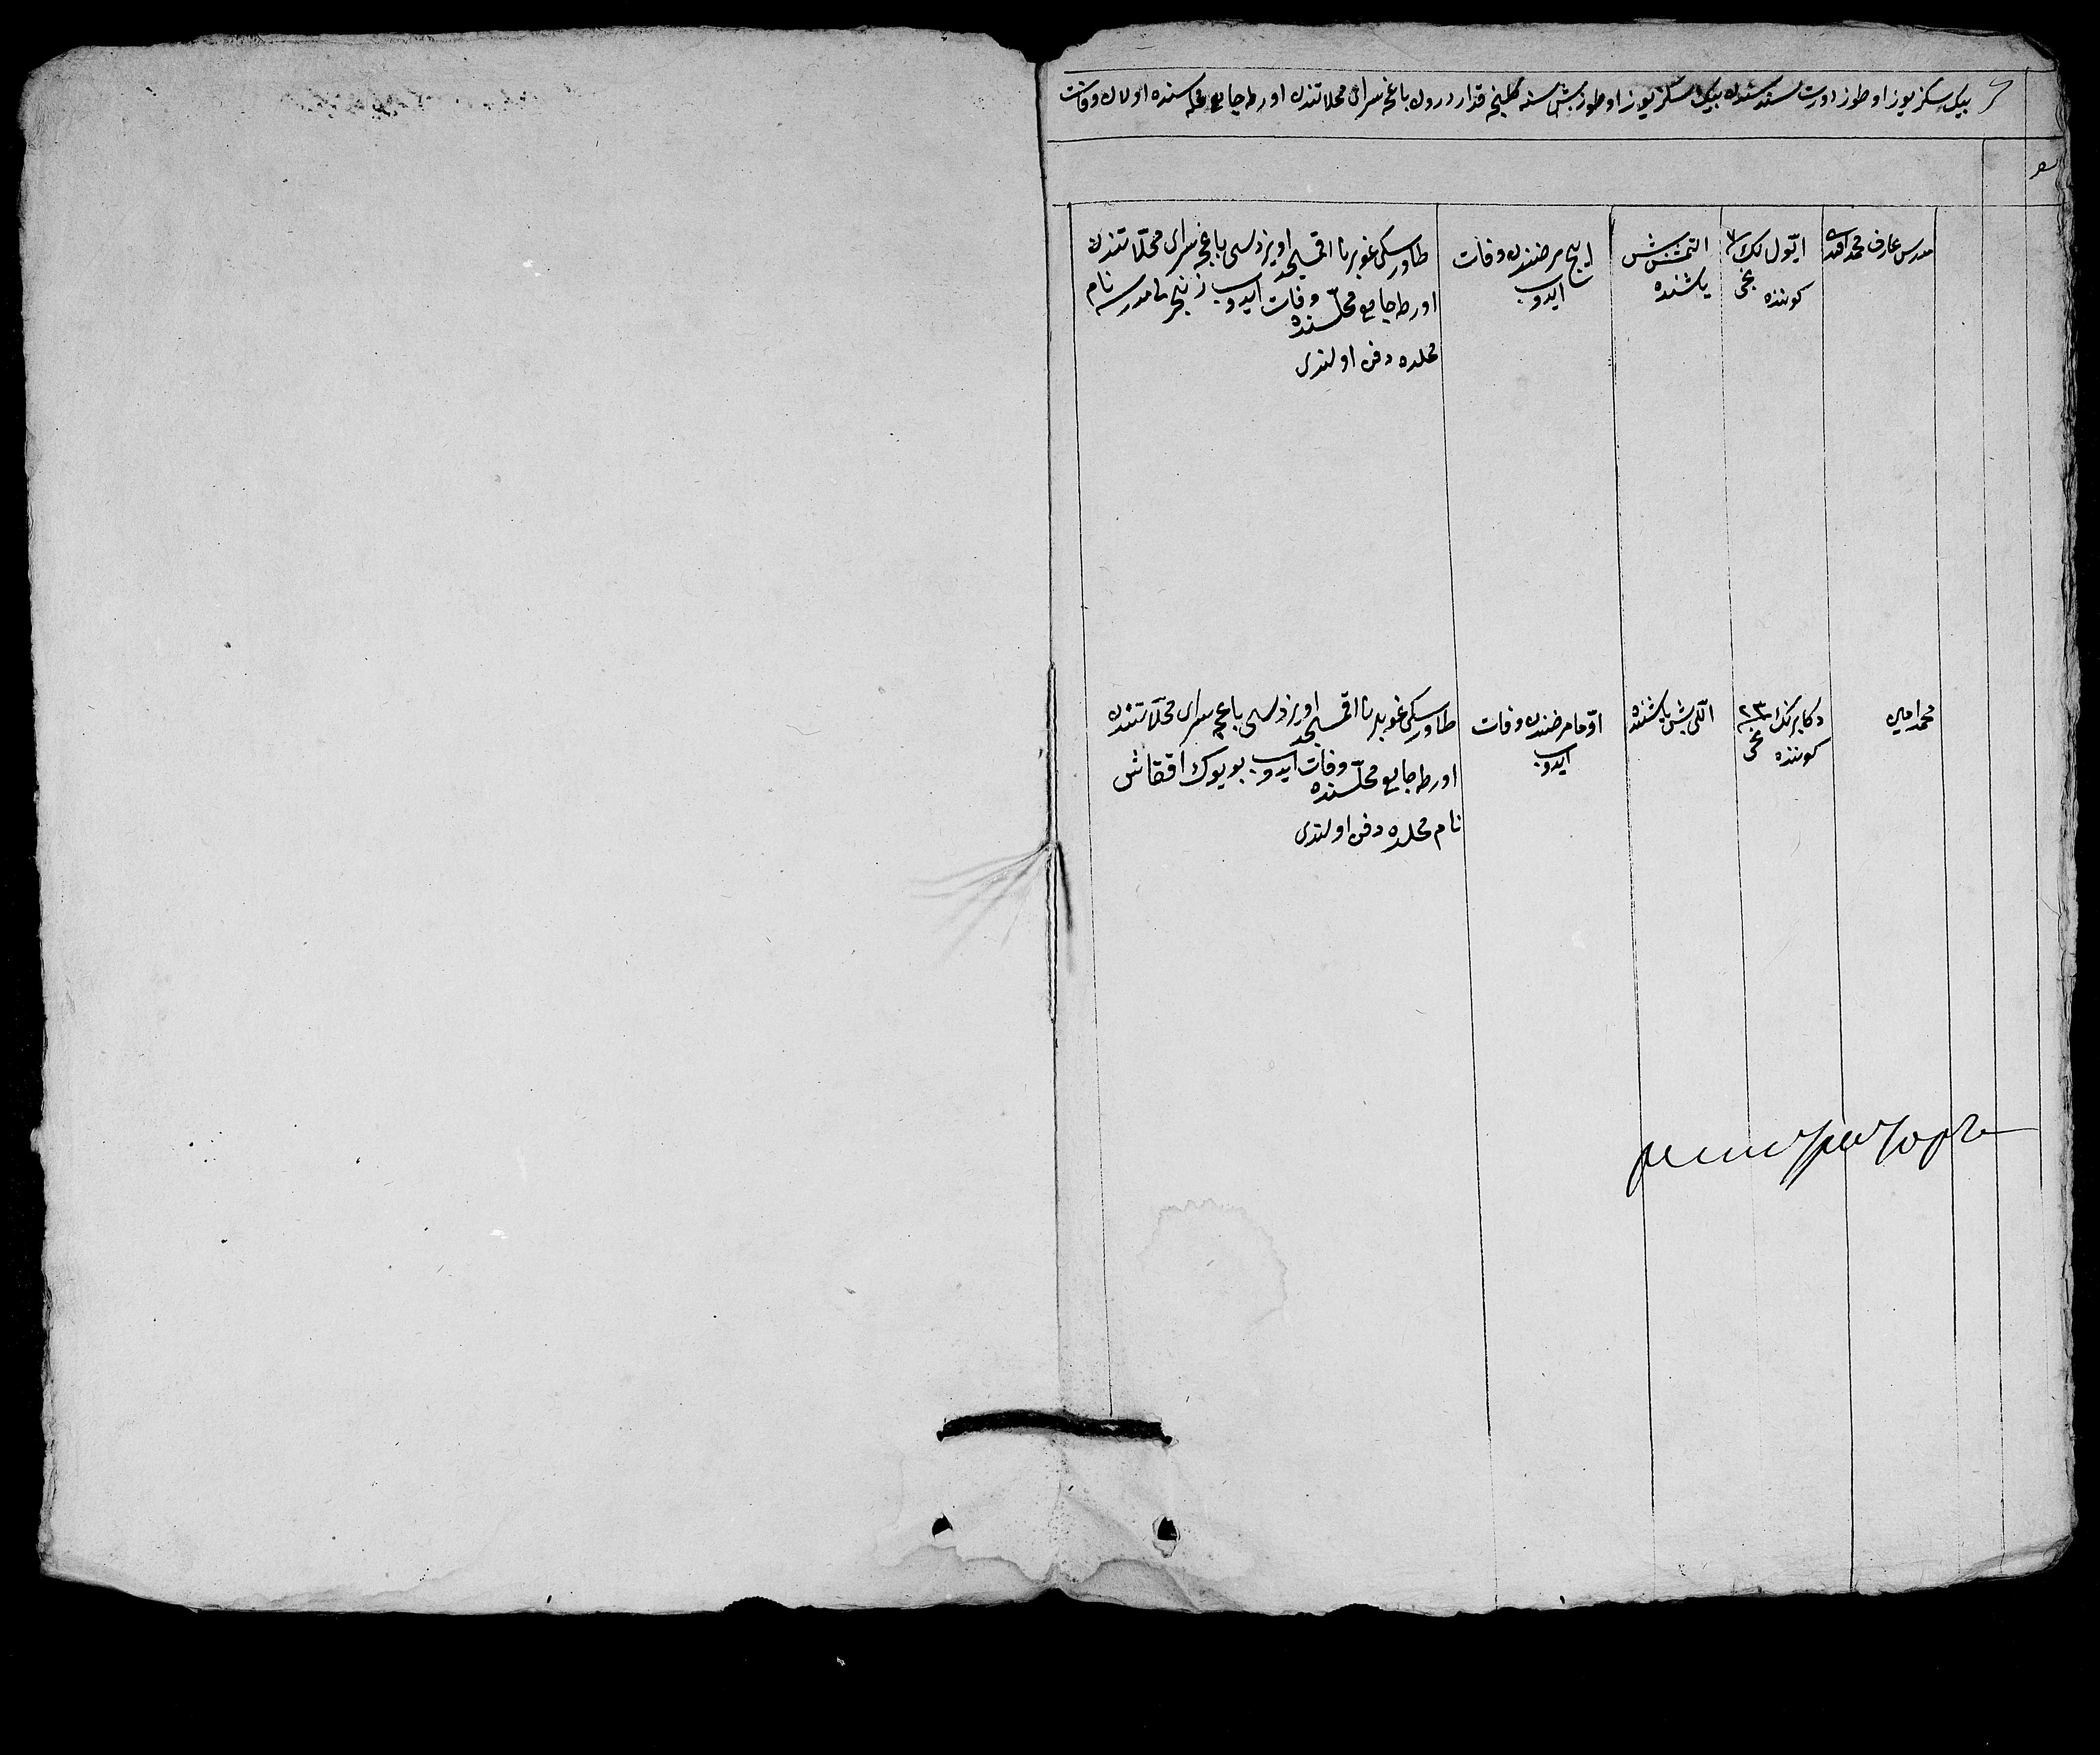 بیک سکز یوز اوطوز دورت سنه سندن بیک سکز یوز اوطوز بش سنه کلینجه قدار درون باغچه سرای محلاتندن اورطه جامع محله سنده اولان وفات
مدرس عارف محمد افندی
ایول نک ٧ نجی
كوننده
التمش بش
یاشنده
ایچ مرضندن وفات
ایدوب
طاوریسکی غوبرنا اقمسجد اویزدسی باغچه سرای محلاتندن
اورطه جامع محلّه سنده وفات ایدوب زنجرلی مدرسه نام
محلده دفن اولندی
محمد امین
دكابرنک ٢٣ نجی
كوننده
اللی بش یاشنده
اوجا مرضندن وفات
ایدوب
طاوریسکی غوبرنا اقمسجد اویزدسی باغچه سرای محلّاتندن
اورطه جامع محلّه سنده وفات ایدوب بویوک اقاش
نام محلده دفن اولندی